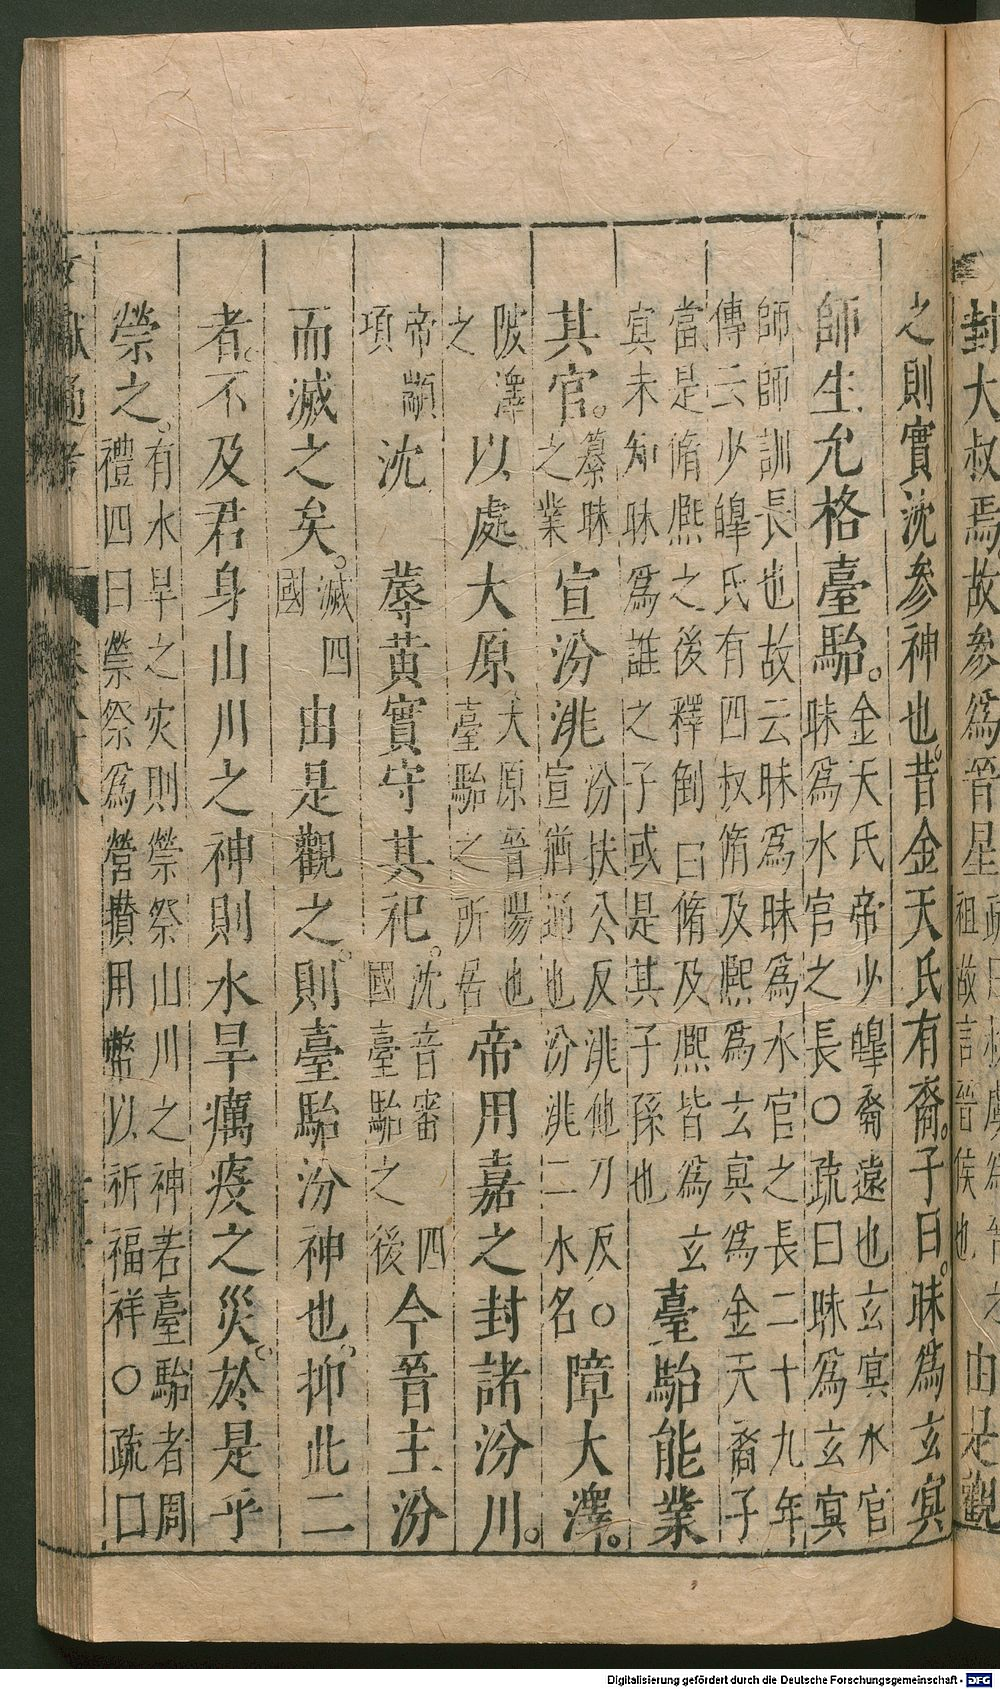 封大叔焉故參爲晉星祖故言晉侯也由是觀
之則實沈參神也。昔金天氏有裔。子曰。昧爲玄冥
師生允格臺駘。金天氏帝少皥裔遠也玄冥水官昧爲水官之長〇疏曰昧爲玄冥
師師訓長也故云昧爲昧爲水官之長二十九年傳云少皥氏有四叔脩及熈爲玄冥爲金天裔子
當是脩熈之後釋倒曰脩及熈皆爲玄冥未知昧爲誰之子或是其子孫也臺駘能業
其官。纂昧之業宣汾洮汾扶公反洮他刀反〇宣猶通也汾洮二水名障大澤。
陂澤之以處大原大原晉陽也臺駘之所居帝用嘉之封諸汾川。
帝顓頊沈 蓐黄實守其祀。沈音審四國臺駘之後今晉主汾
而滅之矣。滅四國由是觀之。則臺駘汾神也。抑此二
者。不及君身山川之神則水旱癘疫之災。於是乎
禜之。有水旱之灾則禜祭山川之神若臺駘者周禮四曰禜祭爲營攅用幣以祈福祥〇疏曰
獻通考
Digitalisierung gefördert durch die Deutsche Forschungsgemeinschaft - DFG